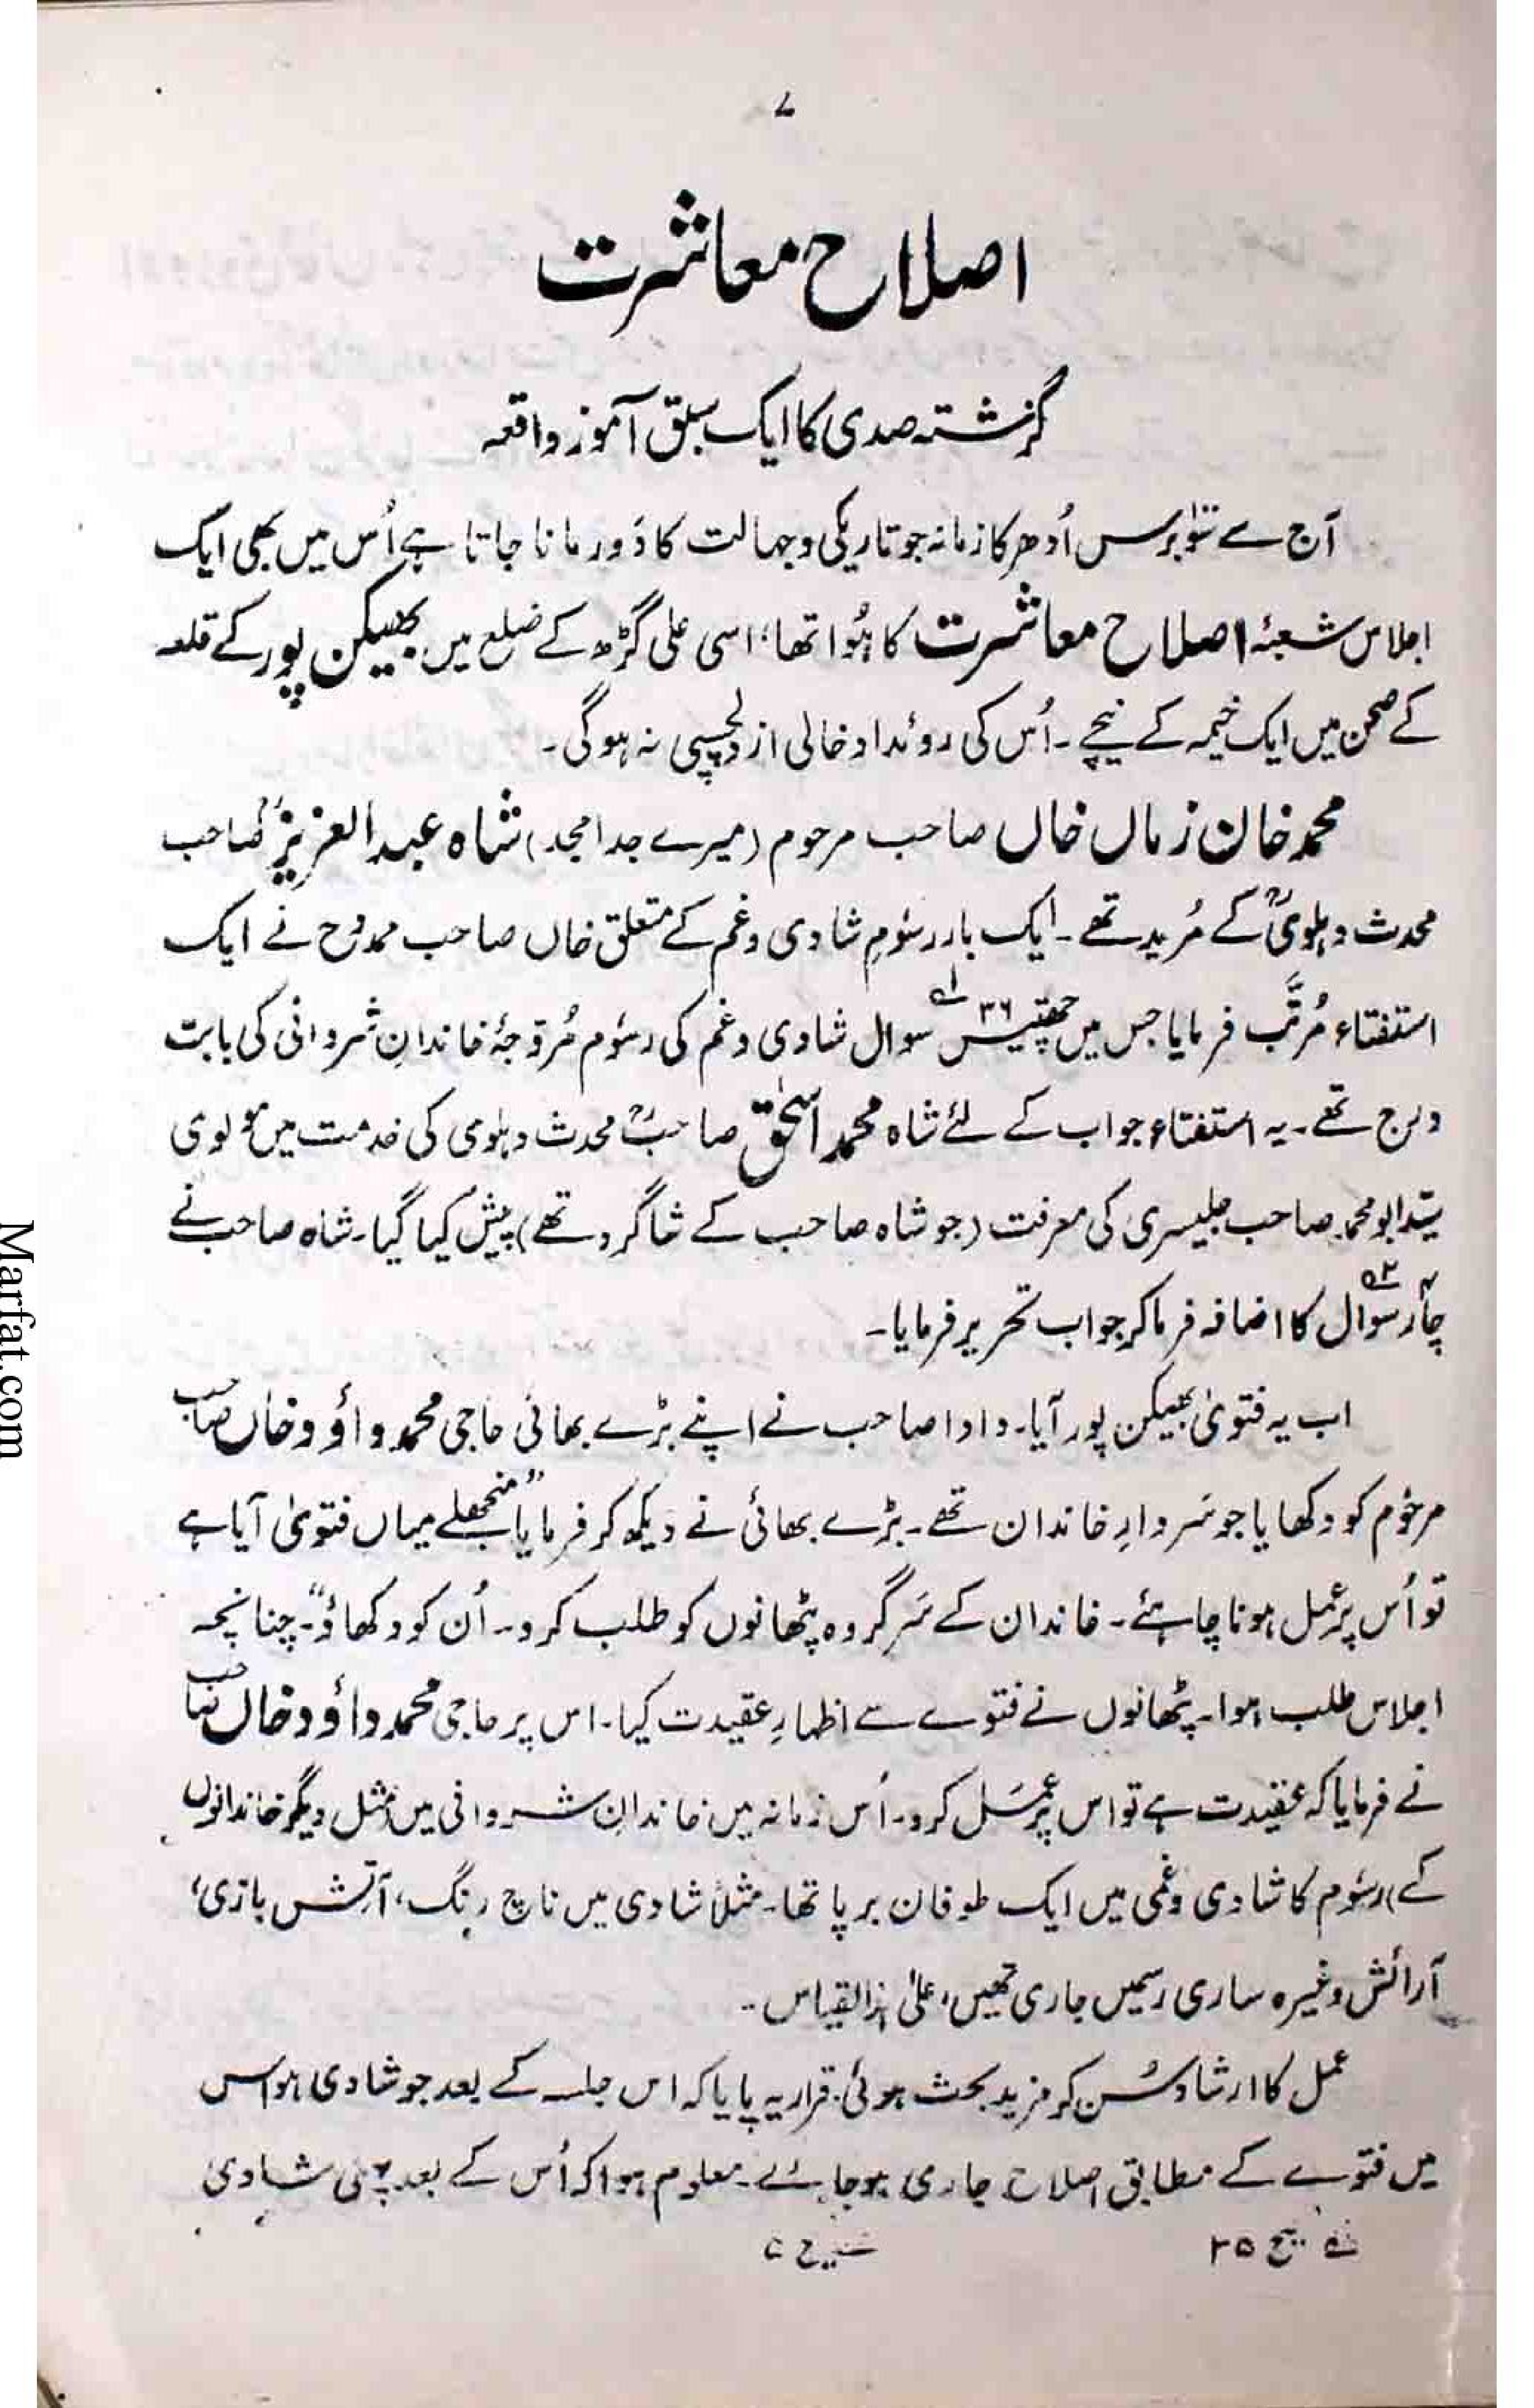 ۷
اصلاح معاشرت
گزشتہ صدی کا ایک سبق آموز واقعہ
آج سے سَو برس اُدھر کا زمانہ جو تاریکی و جہالت کا دَور مانا جاتا ہے اُس میں بھی ایک
اجلاس شعبۂ اصلاح معاشرت کا ہُوا تھا، اسی علی گڑھ کے ضلع میں بھیکن پور کے قلعہ
کے صحن میں ایک خیمہ کے نیچے۔ اُس کی روئداد خالی از دلچسپی نہ ہوگی۔
محمد خان زماں خاں صاحب مرحوم (میرے جد امجد) شاہ عبدالعزیزؒ صاحب
محدث دہلویؒ کے مُرید تھے۔ ایک بار رسُومِ شادی و غم کے متعلق خاں صاحب ممدوح نے ایک
استفتاء مُرتَّب فرمایا جس میں چھتیس ۳۶ سوال ۱ه شادی و غم کی رسُوم مُروّجۂ خاندانِ شروانی کی بابت
درج تھے۔ یہ استفتاء جواب کے لئے شاہ محمد اسحٰق صاحبؒ محدث دہلومی کی خدمت میں مولوی
سیّد ابو محمد صاحب جلیسری کی معرفت (جو شاہ صاحب کے شاگرد تھے) پیش کیا گیا۔ شاہ صاحب نے
چار ۴ سوال ۲ه کا اضافہ فرما کر جواب تحریر فرمایا۔
اب یہ فتویٰ بھیکن پور آیا۔ دادا صاحب نے اپنے بڑے بھائی حاجی محمد داؤد خاں صاحب
مرحُوم کو دکھایا جو سَردارِ خاندان تھے۔ بڑے بھائی نے دیکھ کر فرمایا ”منجھلے میاں فتویٰ آیا ہے
تو اُس پر عمل ہونا چاہئے۔ خاندان کے سَر گروہ پٹھانوں کو طلب کرو۔ اُن کو دکھاؤ“۔ چنانچہ
اجلاس طلب ہوا۔ پٹھانوں نے فتوے سے اظہارِ عقیدت کیا۔ اس پر حاجی محمد داؤد خاں صاحب
نے فرمایا کہ عقیدت ہے تو اس پر عمَل کرو۔ اُس زمانہ میں خاندانِ شروانی میں (مثل دیگر خاندانوں
کے) رسُوم کا شادی و غمی میں ایک طوفان برپا تھا۔ مثلاً شادی میں ناچ رنگ، آتش بازی،
آرائش وغیرہ ساری رسمیں جاری تھیں، علیٰ ہٰذا القیاس۔
عمل کا ارشاد سُن کر مزید بحث ہوئی۔ قرار یہ پایا کہ اس جلسہ کے بعد جو شادی ہو اس
میں فتوے کے مطابق اصلاح جاری ہوجائے۔ معلوم ہوا کہ اُس کے بعد پہلی شادی
Marfat.com